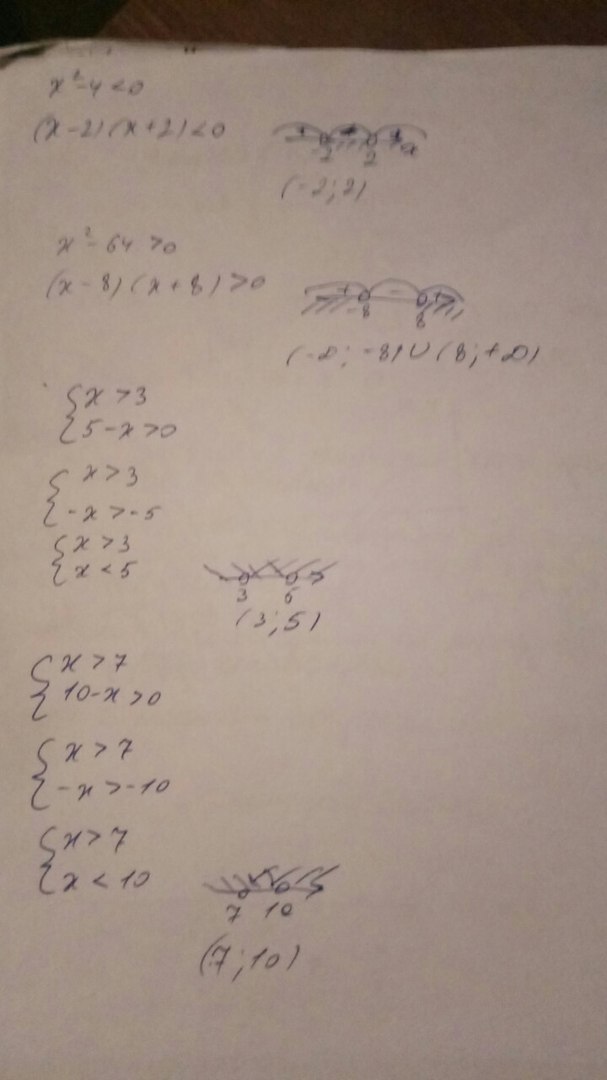 x²-4<0
(x-2)(x+2)<0
-2 2 x
(-2;2)
x²-64>0
(x-8)(x+8)>0
+ - +
-8 8
(-∞;-8)∪(8;+∞)
{x>3
{5-x>0
{x>3
{-x>-5
{x>3
{x<5
3 5
(3;5)
{x>7
{10-x>0
{x>7
{-x>-10
{x>7
{x<10
7 10
(7;10)